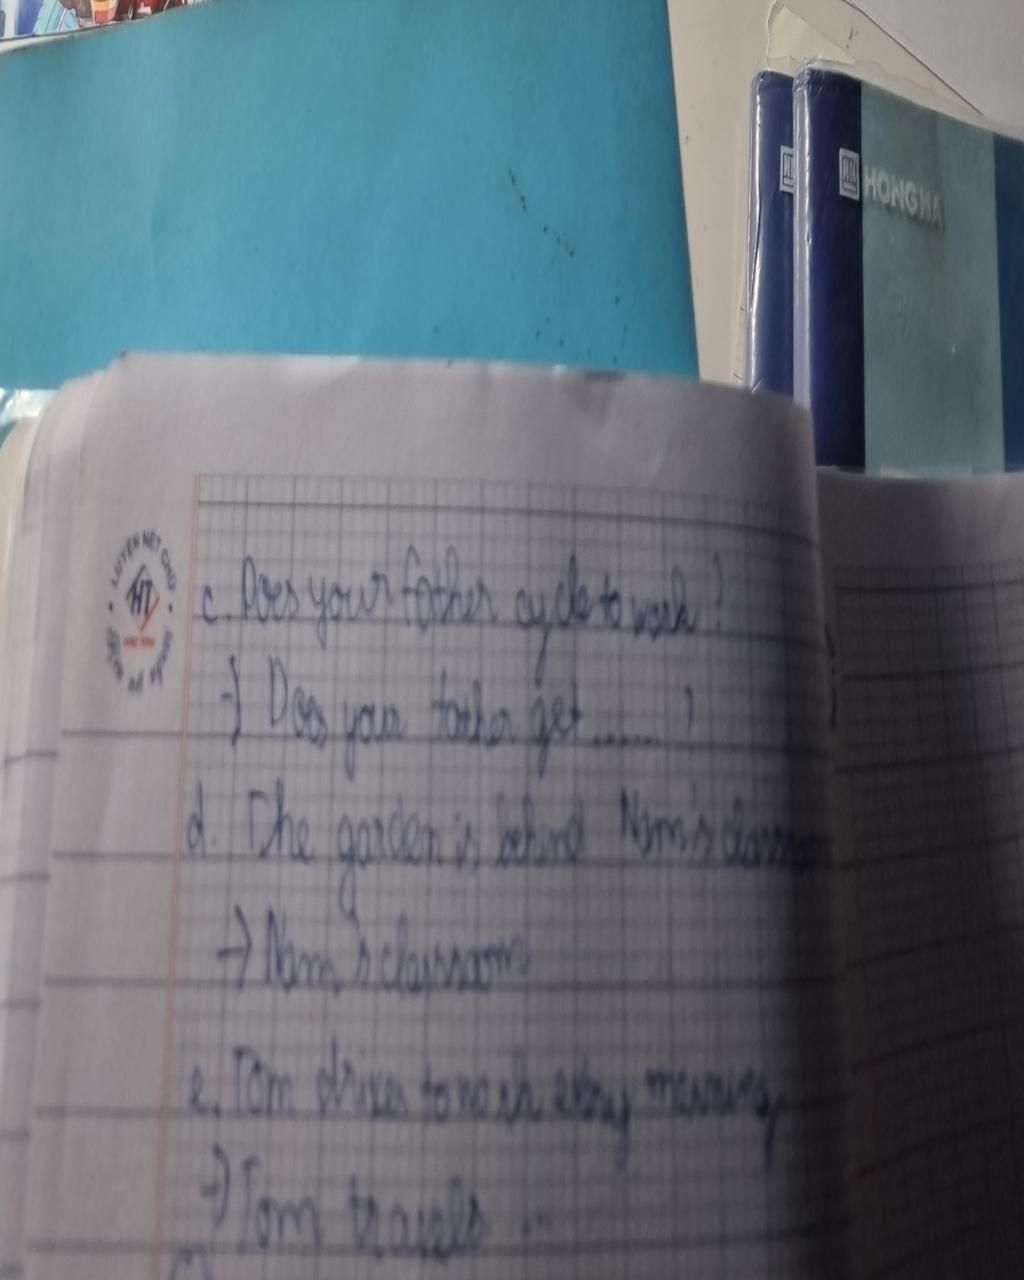 HONG HA
LUYỆN NÉT CHỮ
HT
c. Does your father cycle to work?
→ Does your father get ...... ?
d. The garden is behind Nam's classroom
→ Nam's classroom
e. Tom drives to work every morning
→ Tom travels ...